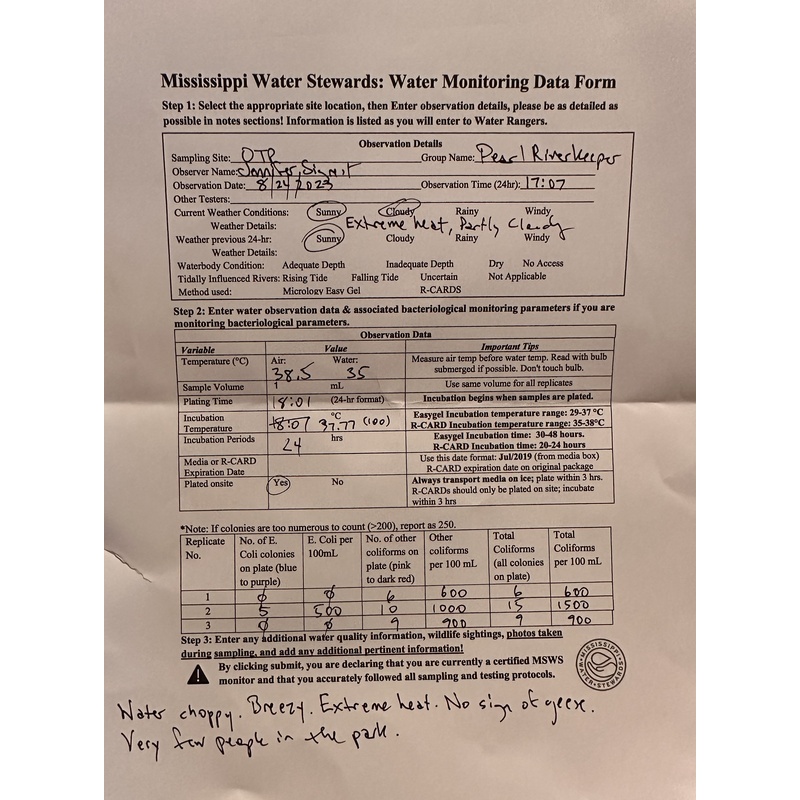 Mississippi Water Stewards: Water Monitoring Data Form
Step 1: Select the appropriate site location, then Enter observation details, please be as detailed as
possible in notes sections! Information is listed as you will enter to Water Rangers.
Observation Details
Sampling Site: OTP Group Name: Pearl Riverkeeper
Observer Name: Jennifer, Sigrit
Observation Date: 8/24/2023 Observation Time (24hr): 17:07
Other Testers:
Current Weather Conditions: Sunny Cloudy Rainy Windy
Weather Details: Extreme heat, Partly Cloudy
Weather previous 24-hr: Sunny Cloudy Rainy Windy
Weather Details:
Waterbody Condition: Adequate Depth Inadequate Depth Dry No Access
Tidally Influenced Rivers: Rising Tide Falling Tide Uncertain Not Applicable
Method used: Micrology Easy Gel R-CARDS
Step 2: Enter water observation data & associated bacteriological monitoring parameters if you are
monitoring bacteriological parameters.
Observation Data
Variable Value Important Tips
Temperature (°C) Air: 38.5 Water: 35 Measure air temp before water temp. Read with bulb
submerged if possible. Don't touch bulb.
Sample Volume 1 mL Use same volume for all replicates
Plating Time 18:01 (24-hr format) Incubation begins when samples are plated.
Incubation Temperature 18:07 37.77 (100) °C Easygel Incubation temperature range: 29-37 °C
R-CARD Incubation temperature range: 35-38°C
Incubation Periods 24 hrs Easygel Incubation time: 30-48 hours.
R-CARD Incubation time: 20-24 hours
Media or R-CARD Expiration Date Use this date format: Jul/2019 (from media box)
R-CARD expiration date on original package
Plated onsite Yes No Always transport media on ice; plate within 3 hrs.
R-CARDs should only be plated on site; incubate
within 3 hrs
*Note: If colonies are too numerous to count (>200), report as 250.
Replicate No. No. of E. Coli colonies on plate (blue to purple) E. Coli per 100mL No. of other coliforms on plate (pink to dark red) Other coliforms per 100 mL Total Coliforms (all colonies on plate) Total Coliforms per 100 mL
1 0 0 6 600 6 600
2 5 500 10 1000 15 1500
3 0 0 9 900 9 900
Step 3: Enter any additional water quality information, wildlife sightings, photos taken
during sampling, and add any additional pertinent information!
By clicking submit, you are declaring that you are currently a certified MSWS
monitor and that you accurately followed all sampling and testing protocols.
MISSISSIPPI WATER STEWARDS
Water choppy. Breezy. Extreme heat. No sign of geese.
Very few people in the park.